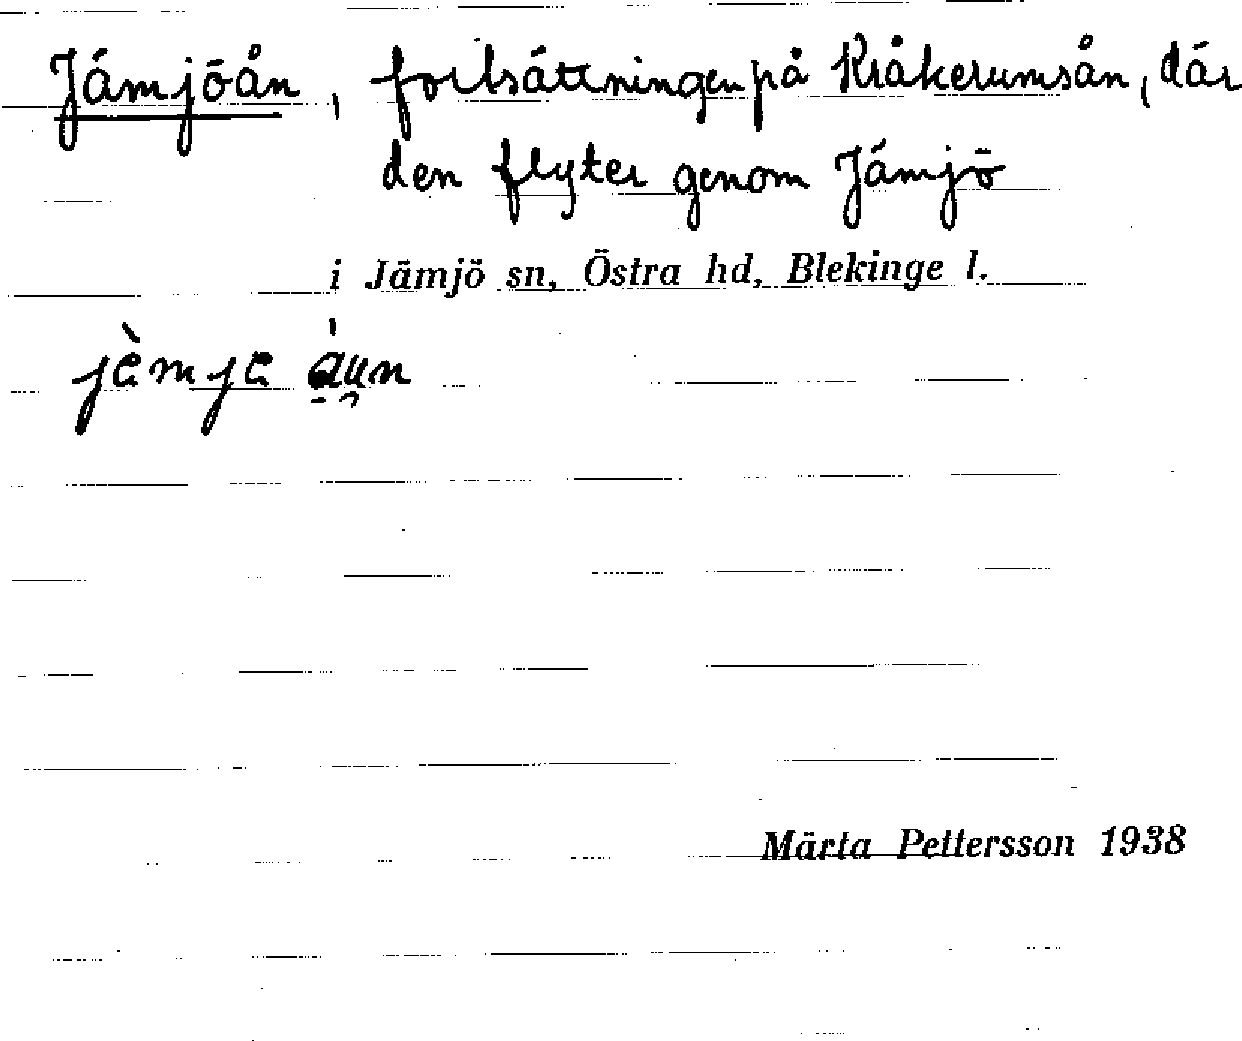 Jämjöån, fortsättningen på Kråkerumsån, där
den flyter genom Jämjö
i Jämjö sn, Östra hd, Blekinge l.
jèmje áun
Märta Pettersson 1938